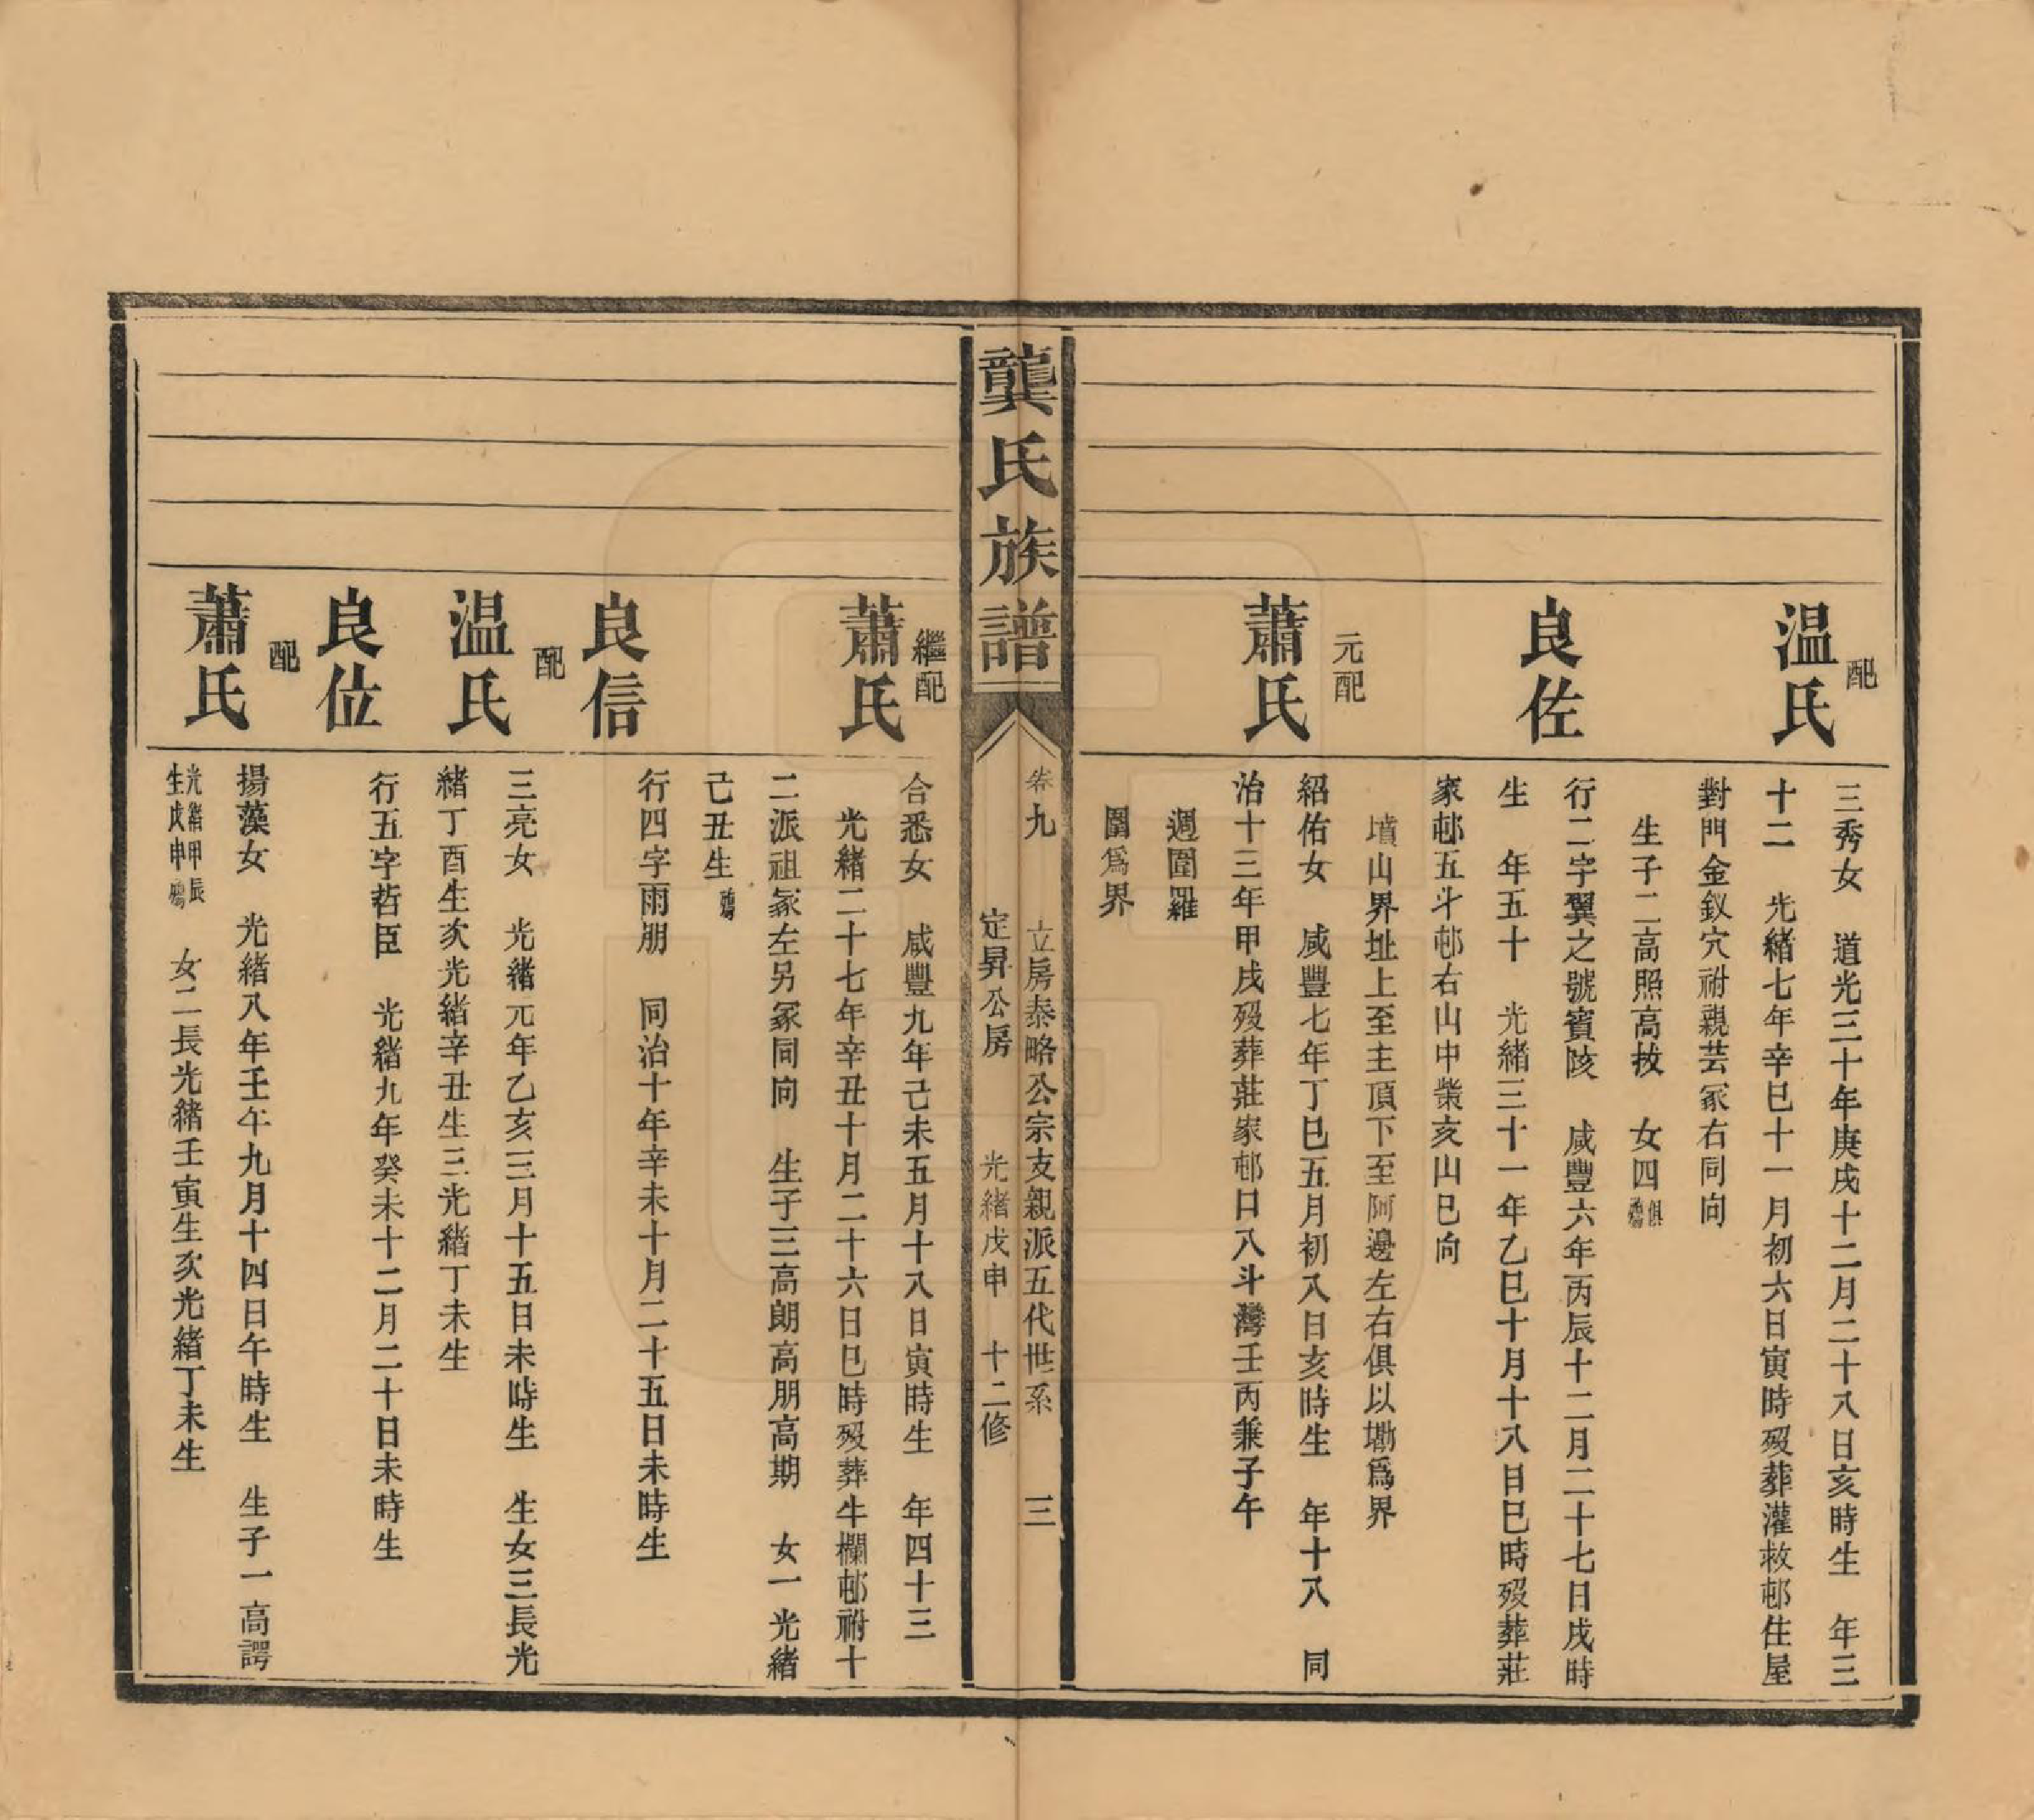 配
温氏
三秀女　道光三十年庚戌十二月二十八日亥時生　年三
十二　光緒七年辛巳十一月初六日寅時殁葬灌救邨住屋
對門金釵穴祔親芸冢右同向
生子二高照高技　女四俱殤
良佐
行二字翼之號賓陔　咸豐六年丙辰十二月二十七日戌時
生　年五十　光緒三十一年乙巳十月十八日巳時殁葬莊
家邨五斗邨右山中業亥山巳向
墳山界址上至主頂下至阿邊左右俱以墈爲界
元配
蕭氏
紹佑女　咸豐七年丁巳五月初八日亥時生　年十八　同
治十三年甲戌殁葬莊家邨日八斗灣壬丙兼子午
週圍羅
圍爲界
龔氏族譜
卷九　立房泰略公宗支親派五代世系　三
定昇公房　光緒戊申　十二修
繼配
蕭氏
合悉女　咸豐九年己未五月十八日寅時生　年四十三
光緒二十七年辛丑十月二十六日巳時殁葬牛欄邨祔十
二派祖冢左另冢同向　生子三高朗高朋高期　女一光緒
己丑生殤
良信
行四字雨朋　同治十年辛未十月二十五日未時生
配
温氏
三亮女　光緒元年乙亥三月十五日未時生　生女三長光
緒丁酉生次光緒辛丑生三光緒丁未生
良位
行五字哲臣　光緒九年癸未十二月二十日未時生
配
蕭氏
揚藻女　光緒八年壬午九月十四日午時生　生子一高諤
光緒甲辰
生戊申殤　女二長光緒壬寅生次光緒丁未生